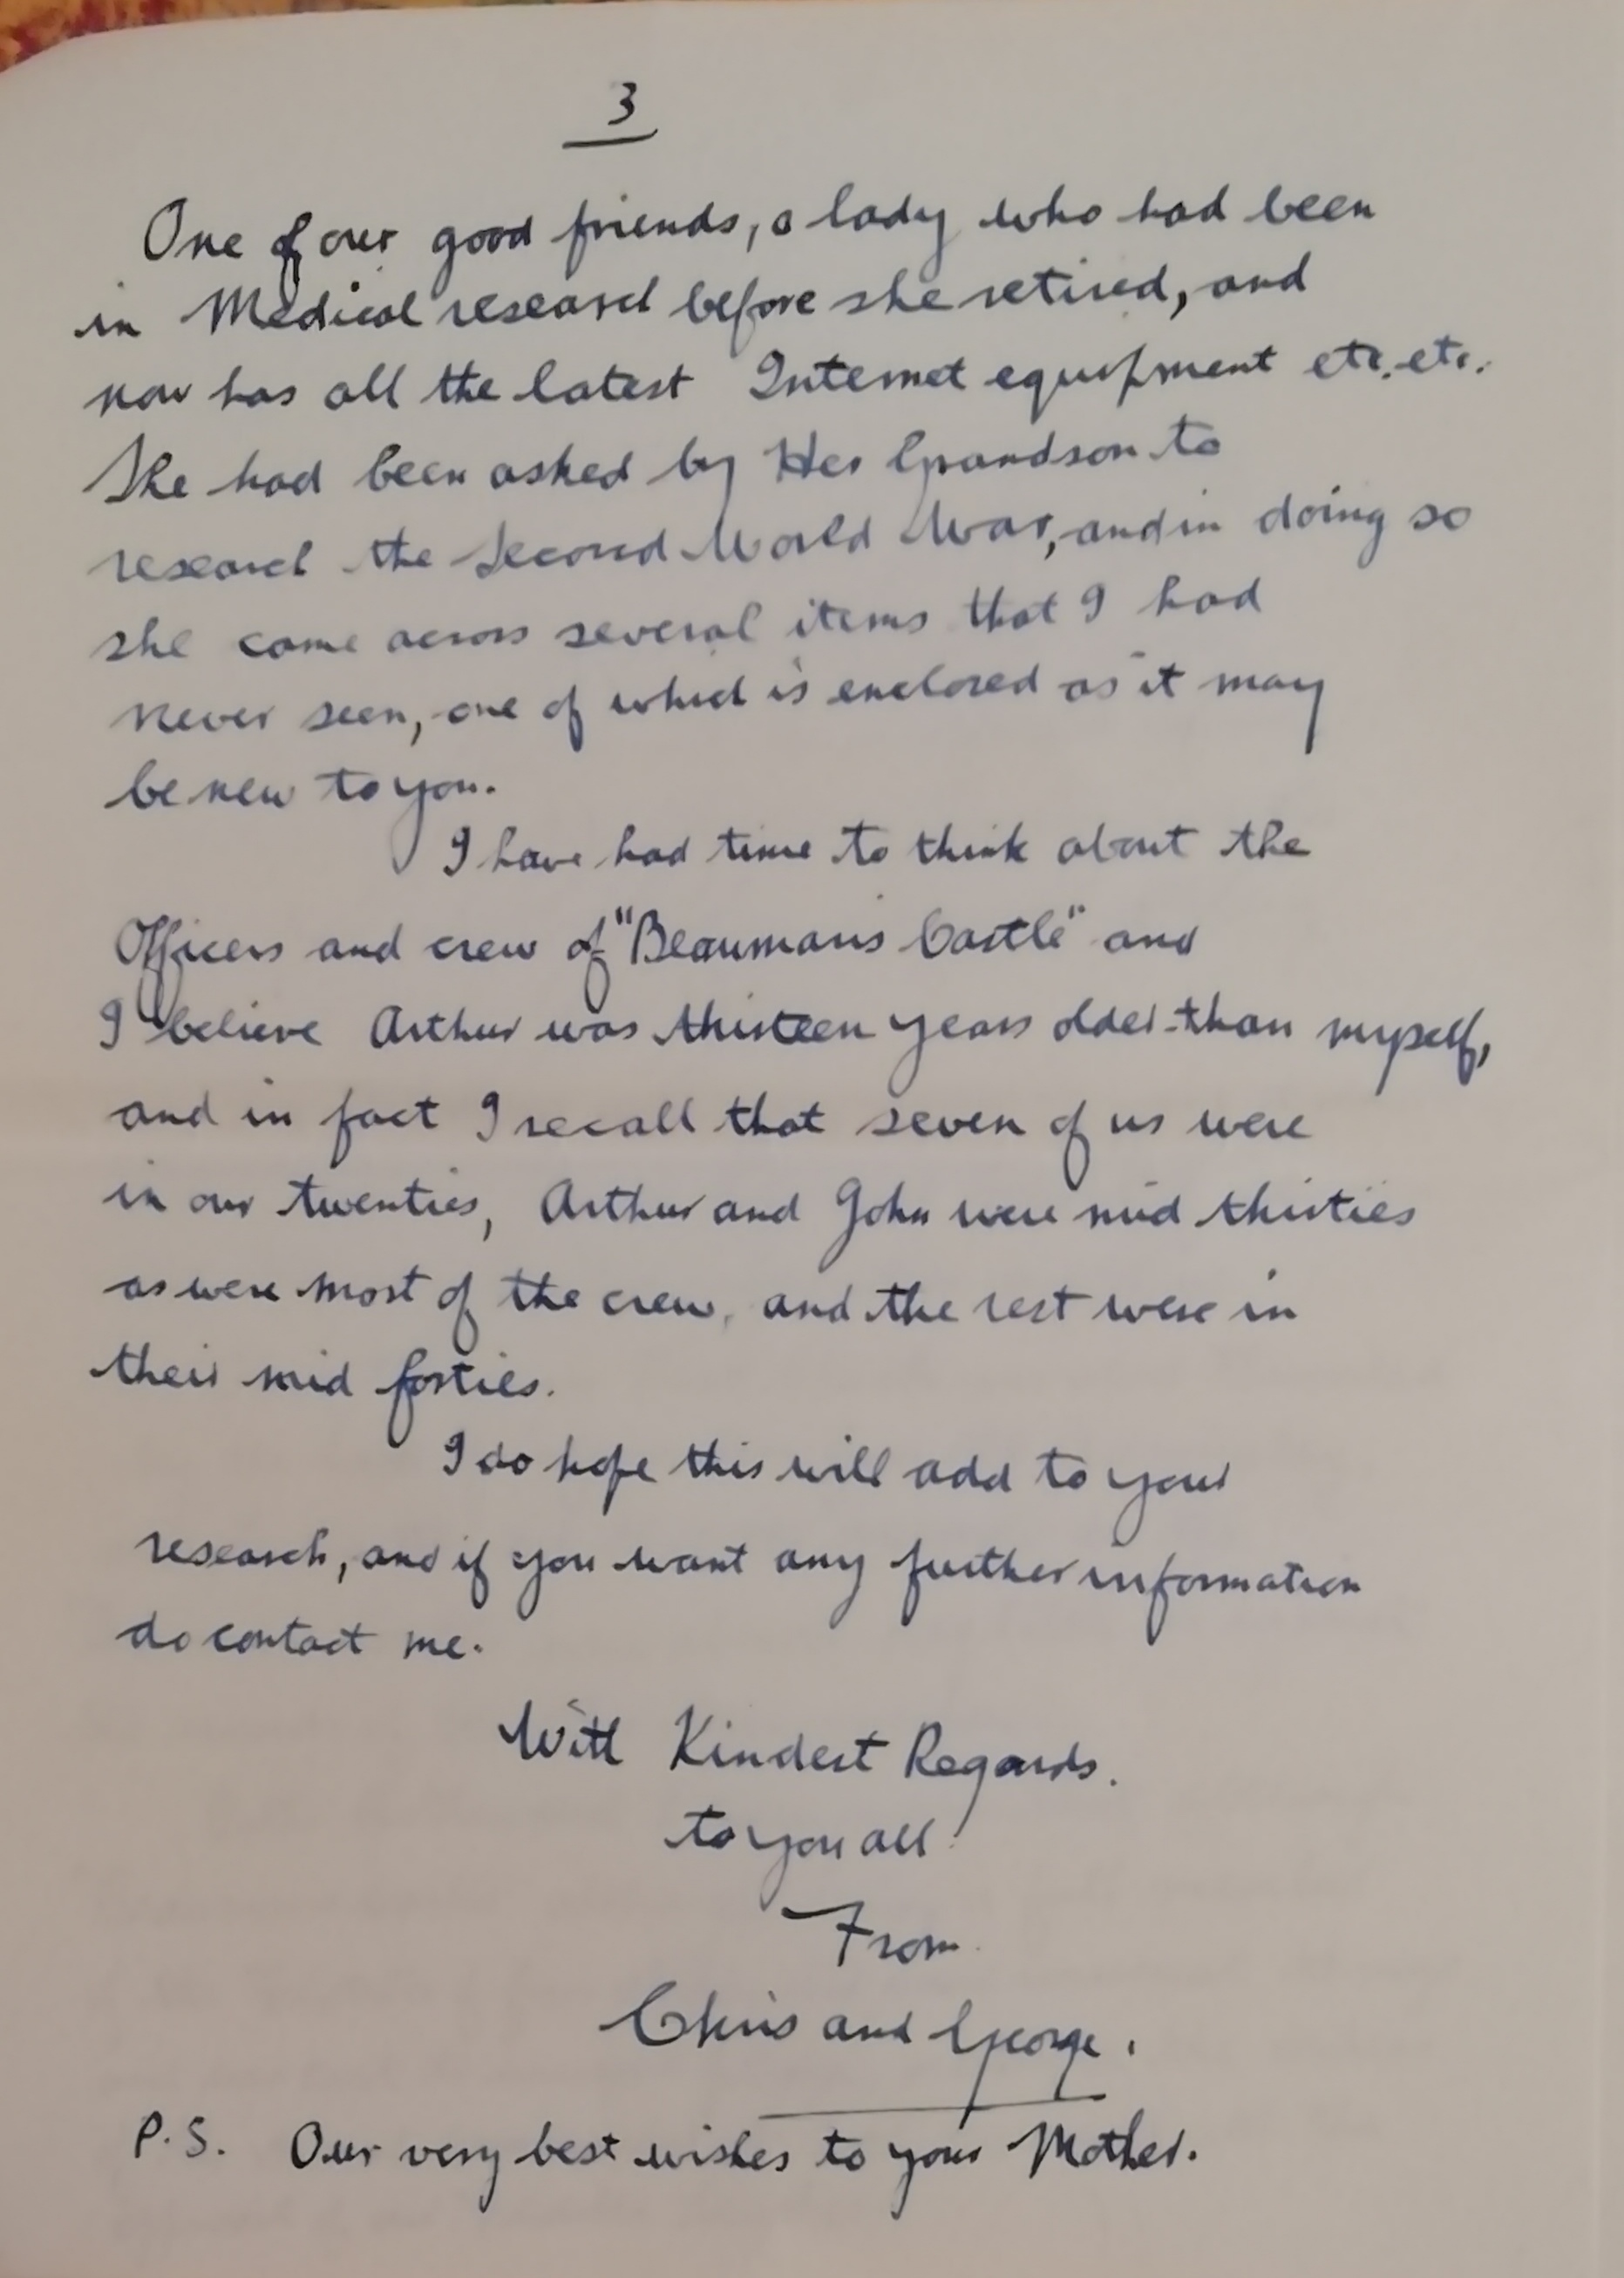 3
One of our good friends, a lady who had been
in Medical research before she retired, and
now has all the latest Internet equipment etc. etc.
She had been asked by Her Grandson to
research the Second World War, and in doing so
she came across several items that I had
never seen, one of which is enclosed as it may
be new to you.
I have had time to think about the
Officers and crew of "Beaumaris Castle" and
I believe Arthur was thirteen years older than myself,
and in fact I recall that seven of us were
in our twenties, Arthur and John were mid thirties
as were most of the crew, and the rest were in
their mid forties.
I do hope this will add to your
research, and if you want any further information
do contact me.
With Kindest Regards.
to you all
From
Chris and George.
P.S. Our very best wishes to your Mother.